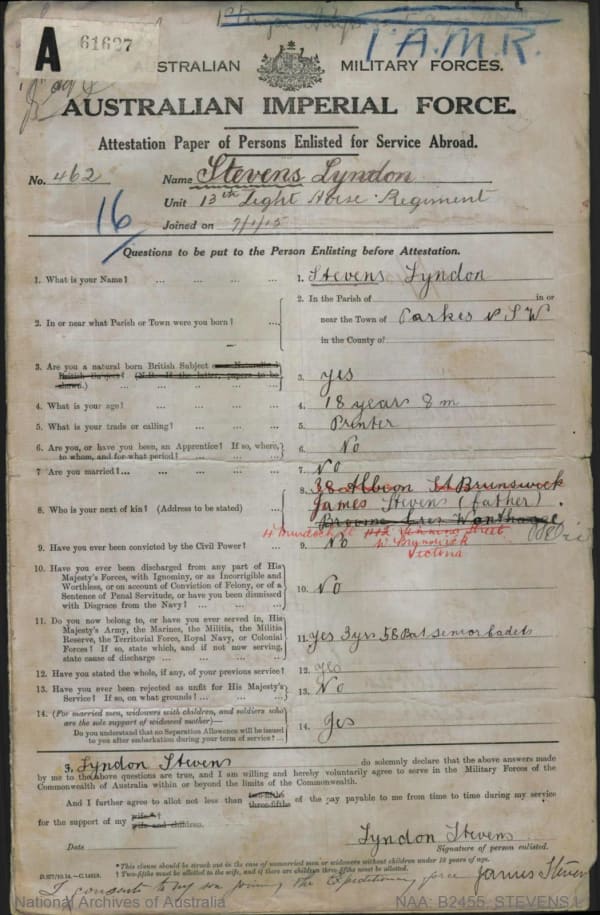 A 61627
1. A.M.R.
AUSTRALIAN MILITARY FORCES.
AUSTRALIAN IMPERIAL FORCE.
Attestation Paper of Persons Enlisted for Service Abroad.
No. 462 Name Stevens Lyndon
Unit 13th Light Horse Regiment
16 Joined on 7/1/15
Questions to be put to the Person Enlisting before Attestation.
1. What is your Name? ... ... ... ... 1. Stevens Lyndon
2. In or near what Parish or Town were you born? ... 2. In the Parish of in or
near the Town of Parkes N S W
in the County of
3. Are you a natural born British Subject or a Naturalised
British Subject? (N.B.—If the latter, papers to be
shown.) ... ... ... ... 3. yes
4. What is your age? ... ... ... ... 4. 18 years 8 m
5. What is your trade or calling? ... ... ... 5. Printer
6. Are you, or have you been, an Apprentice? If so, where,
to whom, and for what period? ... ... ... 6. No
7. Are you married?... ... ... ... ... 7. No
8. Who is your next of kin? (Address to be stated) ... 8. 38 Albion St Brunswick
James Stevens (father)
Broome Cres Wonthaggi
4 Murdock St Street
W Brunswick
Victoria
9. Have you ever been convicted by the Civil Power? ... 9. No
10. Have you ever been discharged from any part of His
Majesty's Forces, with Ignominy, or as Incorrigible and
Worthless, or on account of Conviction of Felony, or of a
Sentence of Penal Servitude, or have you been dismissed
with Disgrace from the Navy? ... ... ... 10. No
11. Do you now belong to, or have you ever served in, His
Majesty's Army, the Marines, the Militia, the Militia
Reserve, the Territorial Force, Royal Navy, or Colonial
Forces? If so, state which, and if not now serving,
state cause of discharge ... ... ... ... 11. yes 3 yrs 58 Bat senior cadets
12. Have you stated the whole, if any, of your previous service? 12. yes
13. Have you ever been rejected as unfit for His Majesty's
Service? If so, on what grounds? ... ... ... 13. No
14. (For married men, widowers with children, and soldiers who
are the sole support of widowed mother)—
Do you understand that no Separation Allowance will be issued
to you after embarkation during your term of service? ... 14. yes
I, Lyndon Stevens do solemnly declare that the above answers made
by me to the above questions are true, and I am willing and hereby voluntarily agree to serve in the Military Forces of the
Commonwealth of Australia within or beyond the limits of the Commonwealth.
And I further agree to allot not less than two-fifths three-fifths of the pay payable to me from time to time during my service
for the support of my wife*† wife and children.
Lyndon Stevens
Date Signature of person enlisted.
* This clause should be struck out in the case of unmarried men or widowers without children under 18 years of age.
† Two-fifths must be allotted to the wife, and if there are children three-fifths must be allotted.
I consent to my son joining the Expeditionary force James Stevens
National Archives of Australia NAA: B2455, STEVENS L